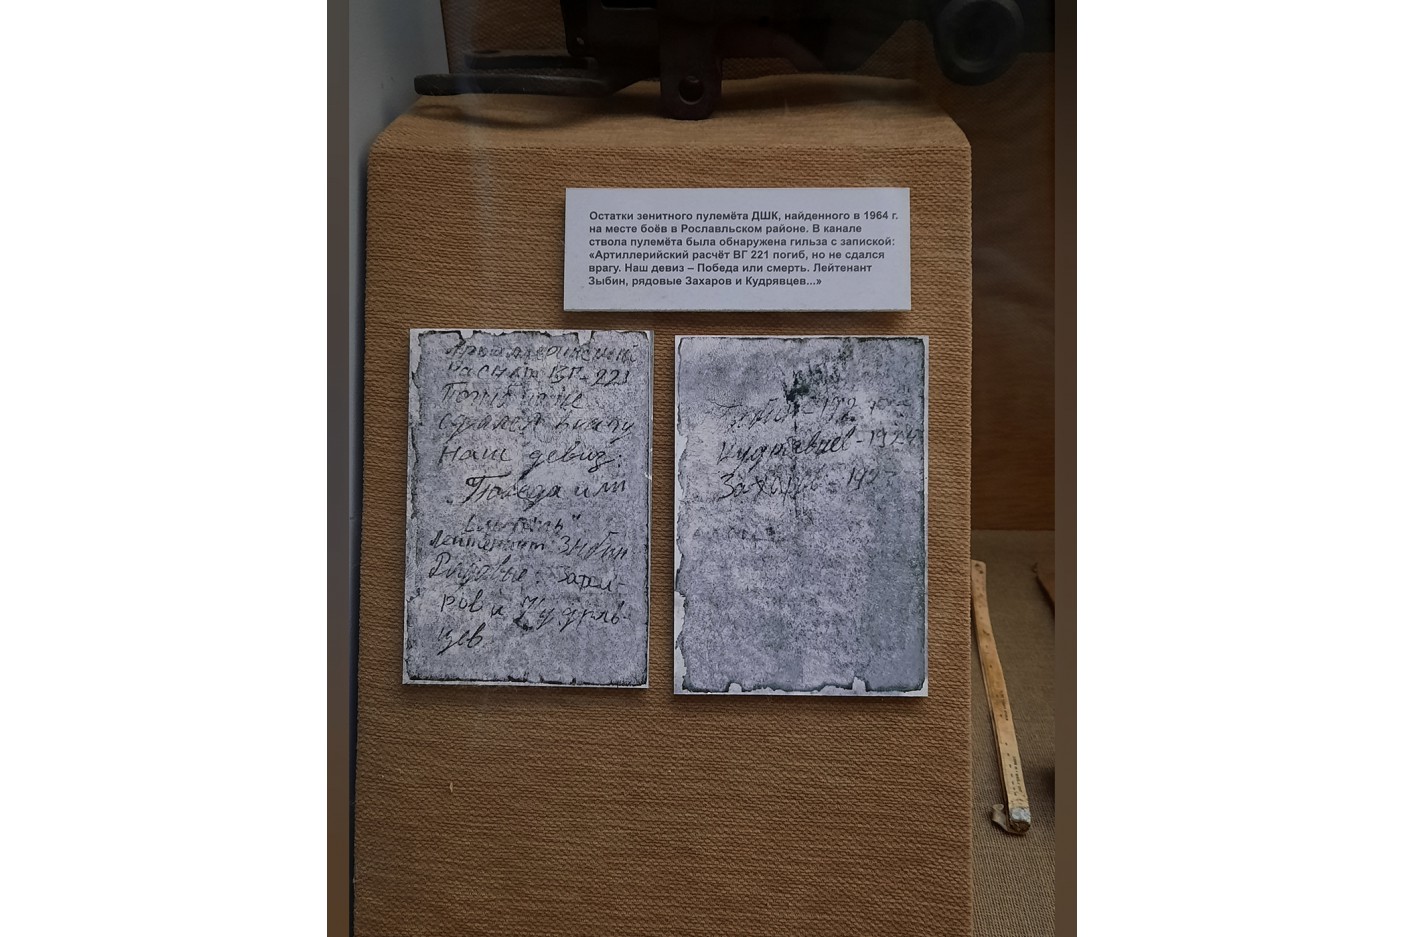 Остатки зенитного пулемёта ДШК, найденного в 1964 г.
на месте боёв в Рославльском районе. В канале
ствола пулемёта была обнаружена гильза с запиской:
«Артиллерийский расчёт ВГ 221 погиб, но не сдался
врагу. Наш девиз – Победа или смерть. Лейтенант
Зыбин, рядовые Захаров и Кудрявцев...»
Артиллерийский
расчёт ВГ-221
Погиб но не
сдался врагу
Наш девиз:
„Победа или
смерть"
Лейтенант Зыбин
Рядовые: Заха-
ров и Кудряв-
цев
Зыбин
Кудрявцев - 1924
Захаров